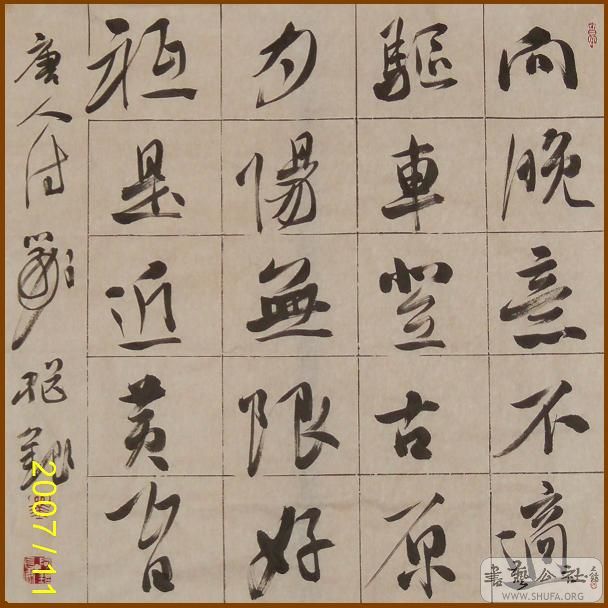 向晚意不適
驅車登古原
夕陽無限好
祗是近黃昏
唐人詩
2007/11
書藝公社
WWW.SHUFA.ORG